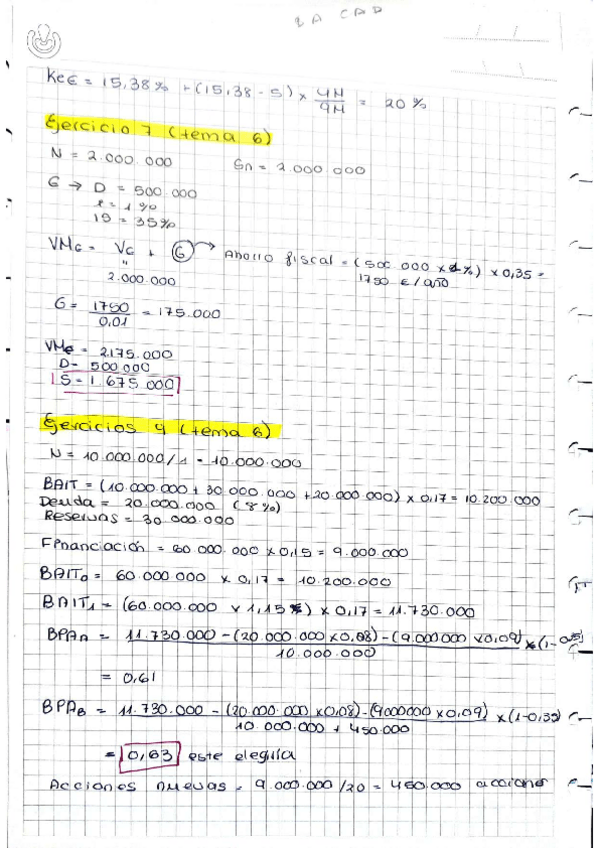 2A CAD
Ke∈ = 15,38% + (15,38 - 5) × 4N/9N = 20%
Ejercicio 7 (tema 6)
N = 2.000.000 Sn = 2.000.000
G → D = 500.000
r = 1%
IS = 35%
VMG = VG + G → Ahorro fiscal = (500.000 × 1%) × 0,35 =
2.000.000 1750 €/año
G = 1750/0,01 = 175.000
VMG = 2.175.000
D = 500.000
S = 1.675.000
Ejercicios 4 (tema 6)
N = 10.000.000/1 = 10.000.000
BAIT = (10.000.000 + 30.000.000 + 20.000.000) × 0,17 = 10.200.000
Deuda = 20.000.000 (8%)
Reservas = 30.000.000
Financiación = 60.000.000 × 0,15 = 9.000.000
BAIT0 = 60.000.000 × 0,17 = 10.200.000
BAIT1 = (60.000.000 × 1,15) × 0,17 = 11.730.000
BPAA = 11.730.000 - (20.000.000 × 0,08) - (9.000.000 × 0,09) × (1-0,35)
10.000.000
= 0,61
BPAB = 11.730.000 - (20.000.000 × 0,08) - (9000000 × 0,09) × (1-0,35)
10.000.000 + 450.000
= 0,63 este elegiría
Acciones nuevas = 9.000.000/20 = 450.000 acciones